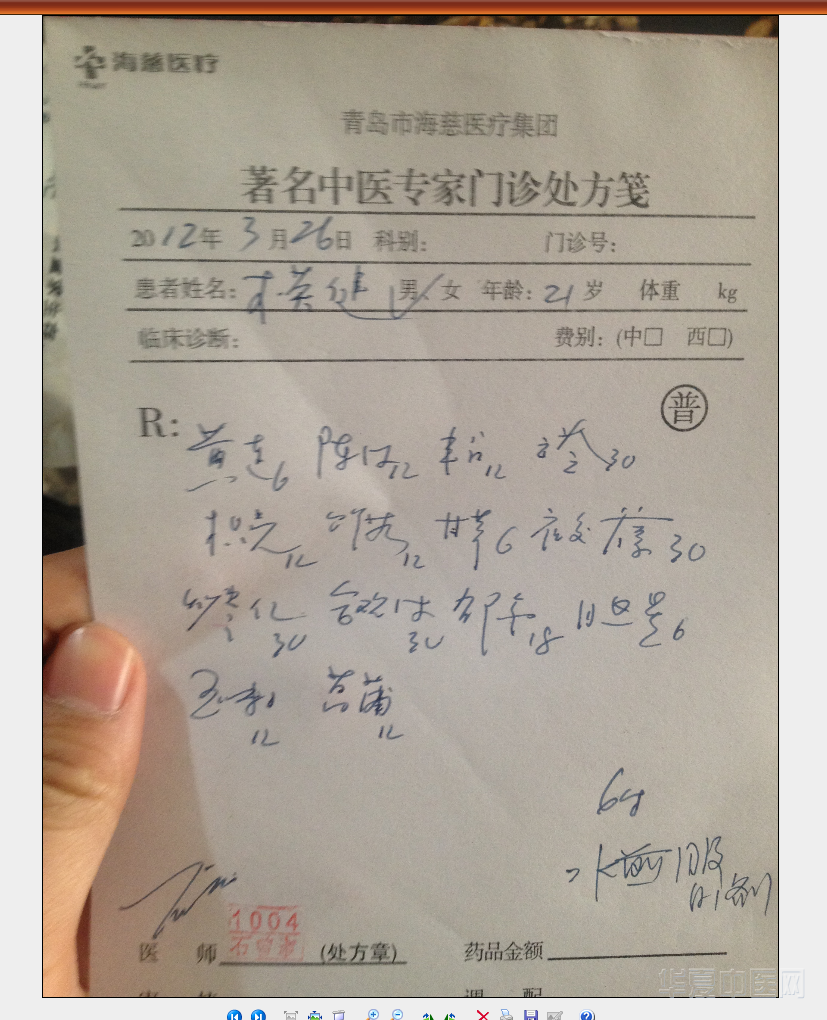 海慈医疗
青岛市海慈医疗集团
著名中医专家门诊处方笺
2012年 3月26日 科别: 门诊号:
患者姓名: 男、女 年龄: 21岁 体重 kg
临床诊断: 费别: (中□ 西□)
R: 普
黄连6 陈皮12 半夏12 茯苓30
枳壳12 竹茹12 甘草6 夜交藤30
30 合欢皮30 郁金18 6
12 菖蒲12
6付
水煎服
日1剂
1004
医 师 (处方章) 药品金额
调 配
华夏中医网